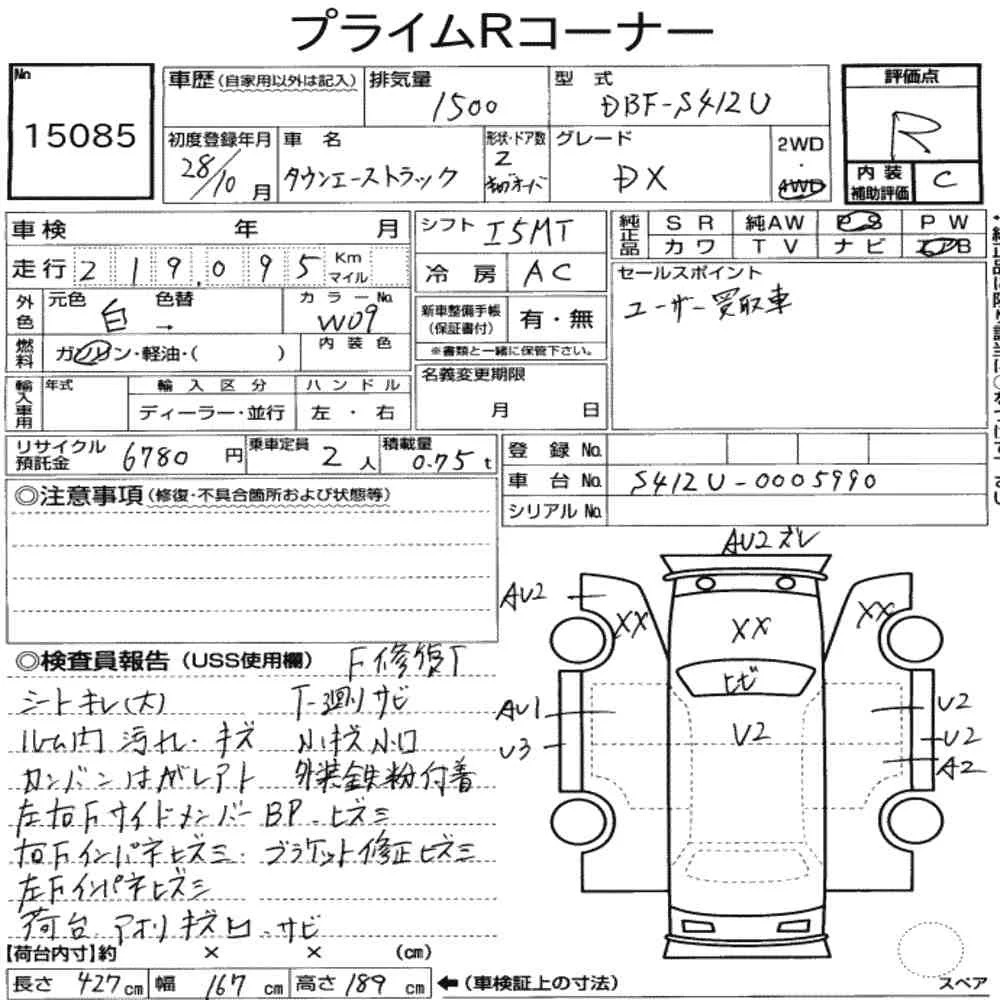 プライムRコーナー
No
15085
車歴(自家用以外は記入)
排気量
1500
型 式
DBF-S412U
評価点
R
初度登録年月
28/10 月
車 名
タウンエーストラック
形状・ドア数
2
グレード
DX
2WD
・
4WD
内 装
補助評価
C
車検 年 月
走行 219,095 Km
マイル
シフト I5MT
冷 房 AC
純正品
S R 純AW P S P W
カ ワ T V ナ ビ
セールスポイント
ユーザー買取車
外色
元色 白 色替 →
カラーNo.
W09
新車整備手帳
(保証書付)
有・無
※書類と一緒に保管下さい。
燃料
ガソリン・軽油・( )
内 装 色
輸入車用
年式
輸 入 区 分
ハ ン ド ル
ディーラー・並行
左 ・ 右
名義変更期限
月 日
リサイクル
預託金
6780 円
乗車定員
2 人
積載量
0.75 t
登 録 No.
車 台 No. S412U-0005990
シリアル No.
◎注意事項(修復・不具合箇所および状態等)
AU2 ズレ
AU2
XX
XX
XX
ヒビ
AU1
U2
U2
U3
U2
A2
◎検査員報告(USS使用欄) F修復T
シートキレ(大) T-廻りサビ
ルーム内汚れ・キズ 小キズ小凹
カンバンはがレアト 外装鉄粉付着
左右Fサイドメンバー BP.ヒズミ
右Fインパネヒズミ. ブラケット修正ヒズミ
左Fインパネヒズミ
荷台.アオリキズ凹.サビ
【荷台内寸】約 × × (cm)
長さ 427 cm 幅 167 cm 高さ 189 cm ←(車検証上の寸法)
スペア